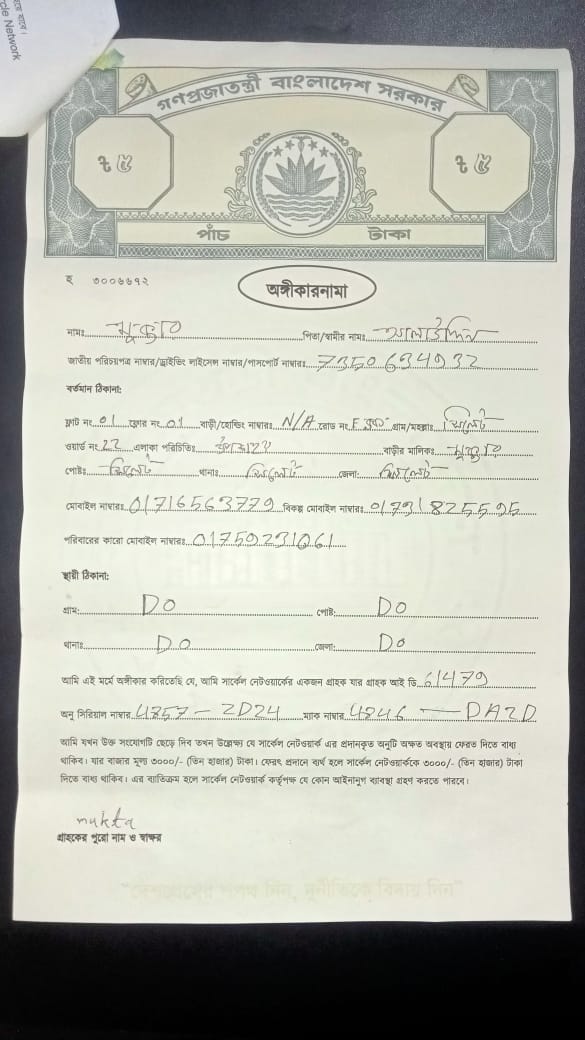 cle Network
গণপ্রজাতন্ত্রী বাংলাদেশ সরকার
৳ ৫ ৳ ৫
পাঁচ টাকা
হ ৩০০৬৬১২
অঙ্গীকারনামা
নামঃ মুক্তা পিতা/স্বামীর নামঃ আলাউদ্দিন
জাতীয় পরিচয়পত্র নাম্বার/ড্রাইভিং লাইসেন্স নাম্বার/পাসপোর্ট নাম্বারঃ 7350634932
বর্তমান ঠিকানা:
ফ্লাট নং 01 ফ্লোর নং 01 বাড়ী/হোল্ডিং নাম্বারঃ N/A রোড নং F ব্লক গ্রাম/মহল্লাঃ সিলেট
ওয়ার্ড নং 22 এলাকা পরিচিতিঃ উপশহর বাড়ীর মালিকঃ মুক্তা
পোষ্টঃ সিলেট থানাঃ সিলেট জেলা: সিলেট
মোবাইল নাম্বারঃ 01716563779 বিকল্প মোবাইল নাম্বারঃ 01731825595
পরিবারের কারো মোবাইল নাম্বারঃ 01759231061
স্থায়ী ঠিকানা:
গ্রাম: DO পোষ্ট: DO
থানাঃ DO জেলা: DO
আমি এই মর্মে অঙ্গীকার করিতেছি যে, আমি সার্কেল নেটওয়ার্কের একজন গ্রাহক যার গ্রাহক আই ডি 61479
অনু সিরিয়াল নাম্বার 4857 - 2D24 ম্যাক নাম্বার 4846 - DA2D
আমি যখন উক্ত সংযোগটি ছেড়ে দিব তখন উল্লেক্ষ্য যে সার্কেল নেটওয়ার্ক এর প্রদানকৃত অনুটি অক্ষত অবস্থায় ফেরত দিতে বাধ্য
থাকিব। যার বাজার মূল্য ৩০০০/- (তিন হাজার) টাকা। ফেরৎ প্রদানে ব্যর্থ হলে সার্কেল নেটওয়ার্ককে ৩০০০/- (তিন হাজার) টাকা
দিতে বাধ্য থাকিব। এর ব্যতিক্রম হলে সার্কেল নেটওয়ার্ক কর্তৃপক্ষ যে কোন আইনানুগ ব্যবস্থা গ্রহণ করতে পারবে।
mukta
গ্রাহকের পুরো নাম ও স্বাক্ষর
"দেশপ্রেমের শপথ নিন, দুর্নীতিকে বিদায় দিন"